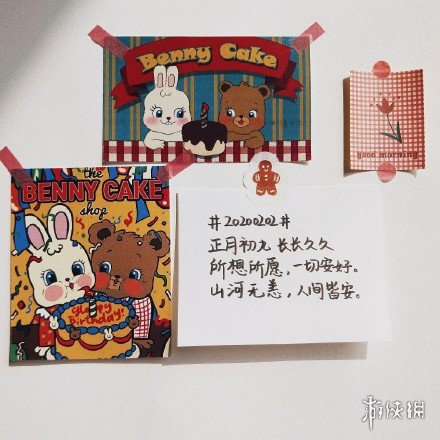 Benny Cake
good morning
the
BENNY CAKE
shop
Happy
Birthday!
#20200202#
正月初九 长长久久
所想所愿，一切安好。
山河无恙，人间皆安。
游侠网